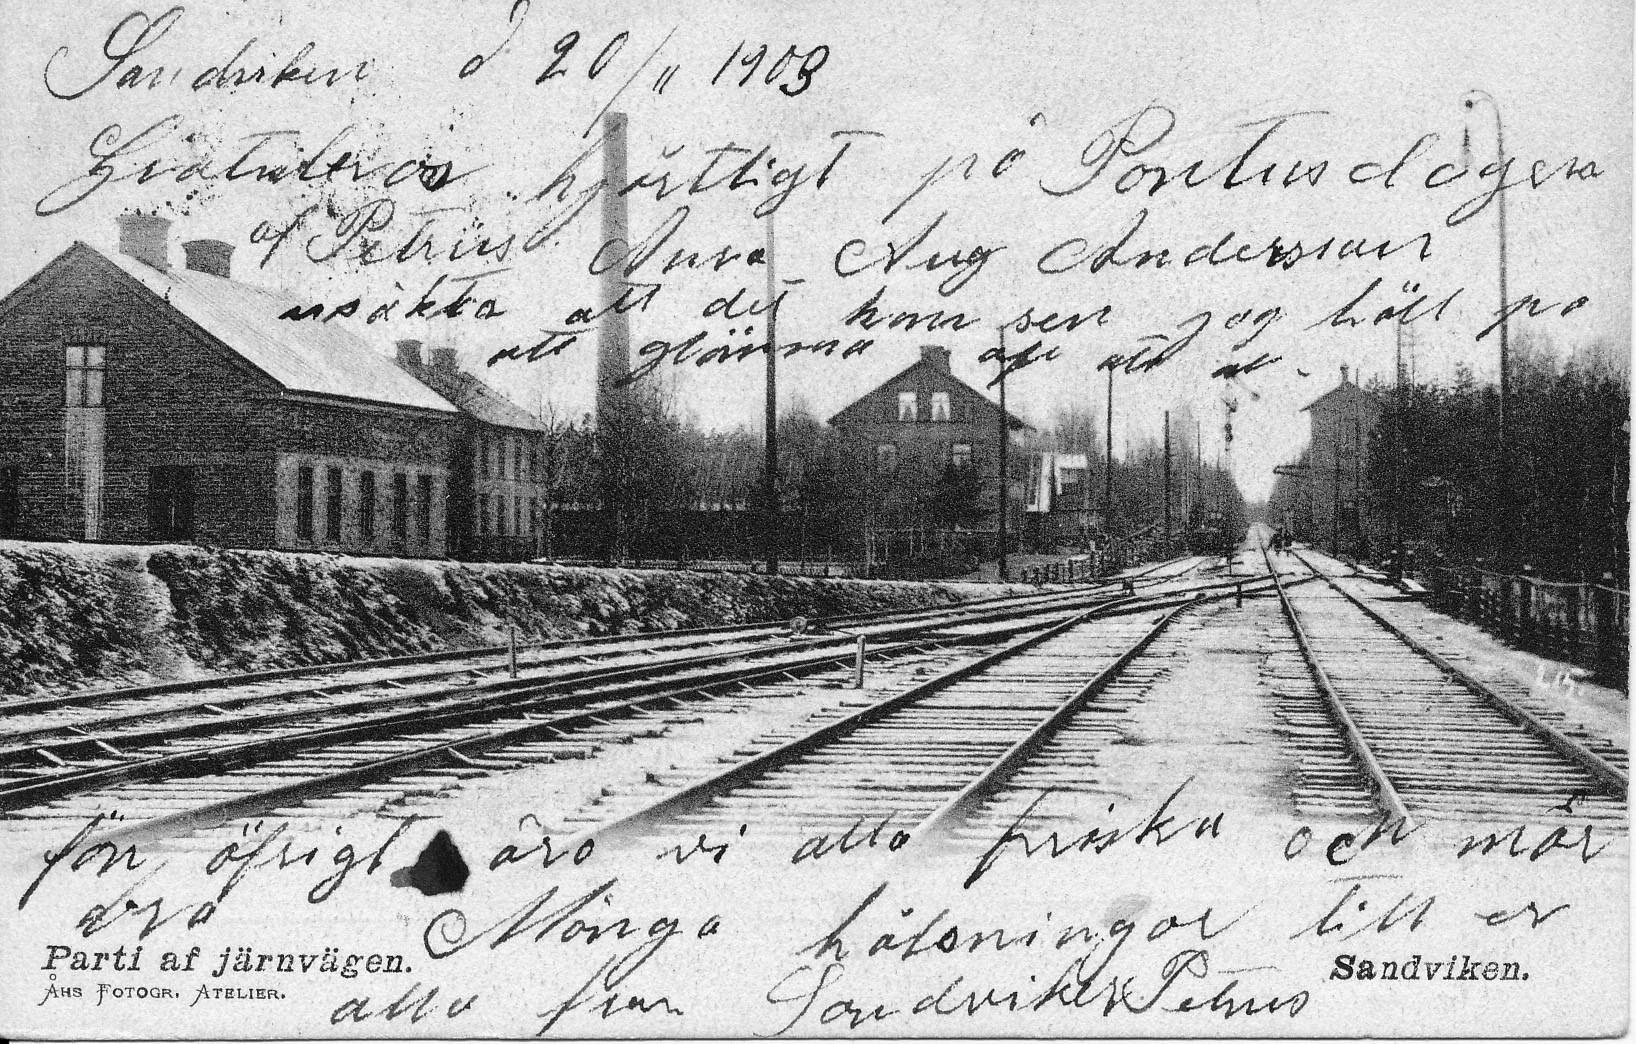 Sandviken d 20/11 1903
Gratuleras hjärtligt på Pontusdagen
af Petrus Anna Aug Andersson
ursäkta att det kom sen jag höll på
att glömma af att
för öfrigt äro vi alla friska och mår
bra Många hälsningar till er
Parti af järnvägen. Sandviken.
ÅHS FOTOGR. ATELIER.
alla från Sandviken Petrus